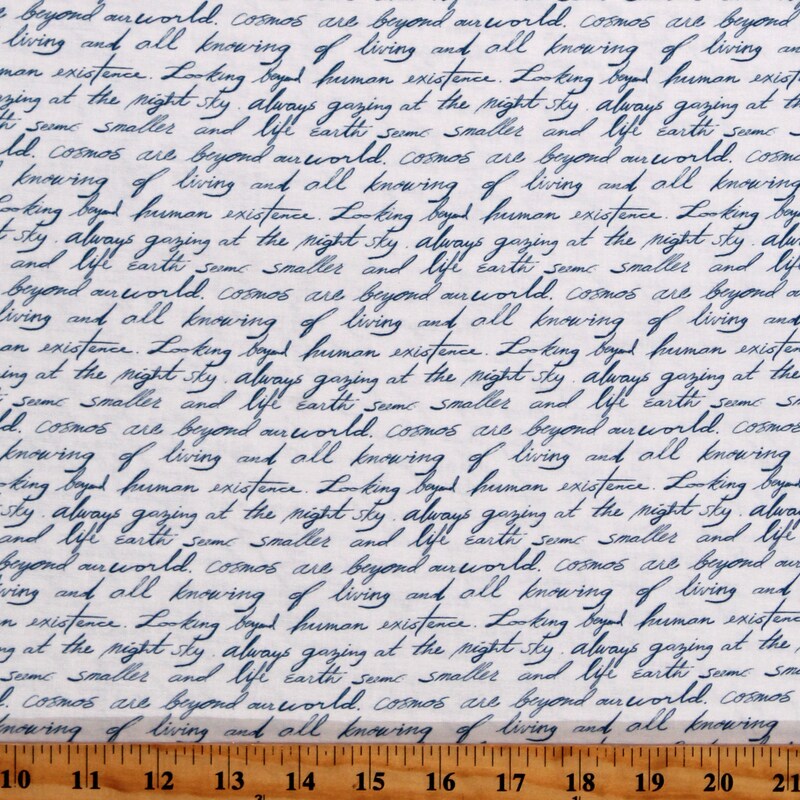 beyond our world. Cosmos are beyond our world. Cosmos are beyond
living and all knowing of living and all knowing of living an
man existence. Looking beyond human existence. Looking beyond human exist
zing at the night sky. always gazing at the night sky. always gazing at th
th seems smaller and life Earth seems smaller and life Earth seems s
ld. Cosmos are beyond our world. Cosmos are beyond our world. Cosmo
knowing of living and all knowing of living and all knowing
ooking beyond human existence. Looking beyond human existence. Looking bey
t sky. always gazing at the night sky. always gazing at the night sky. alw
and life Earth seems smaller and life Earth seems smaller and life
beyond our world. Cosmos are beyond our world. Cosmos are beyond o
living and all knowing of living and all knowing of living and
an existence. Looking beyond human existence. Looking beyond human existen
ing at the night sky. always gazing at the night sky. always gazing at the
seems smaller and life Earth seems smaller and life Earth seems sm
d. Cosmos are beyond our world. Cosmos are beyond our world. Cosmos
knowing of living and all knowing of living and all knowing
oking beyond human existence. Looking beyond human existence. Looking beyond
sky. always gazing at the night sky. always gazing at the night sky. alwa
and life Earth seems smaller and life Earth seems smaller and life
beyond our world. Cosmos are beyond our world. Cosmos are beyond our
iving and all knowing of living and all knowing of living and
n existence. Looking beyond human existence. Looking beyond human existenc
ng at the night sky. always gazing at the night sky. always gazing at the
seems smaller and life Earth seems smaller and life Earth seems sma
. Cosmos are beyond our world. Cosmos are beyond our world. Cosmos
knowing of living and all knowing of living and all knowing
10 11 12 13 14 15 16 17 18 19 20 21